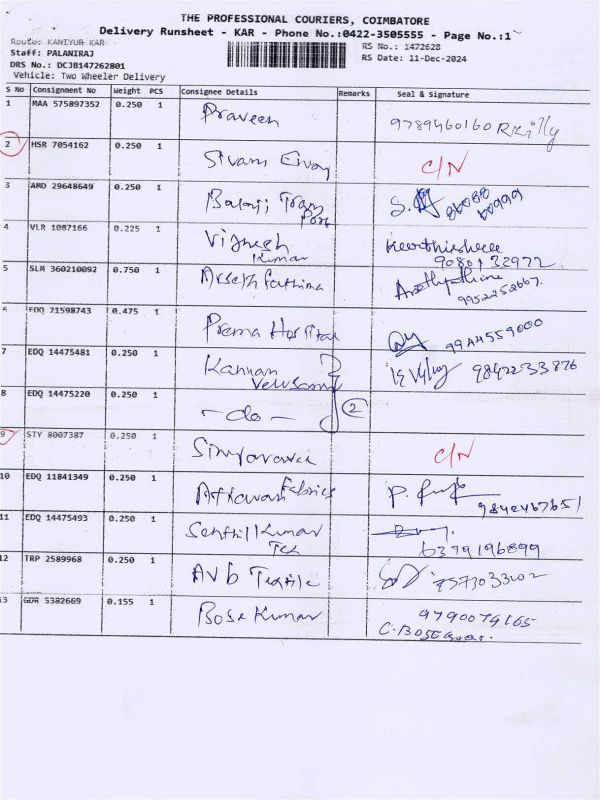 THE PROFESSIONAL COURIERS, COIMBATORE
Delivery Runsheet - KAR - Phone No.:0422-3505555 - Page No.:1
Route: KANIYUR KAR
RS No.: 1472628
Staff: PALANIRAJ
RS Date: 11-Dec-2024
DRS No.: DCJB147262801
Vehicle: Two Wheeler Delivery
S No Consignment No Weight PCS Consignee Details Remarks Seal & Signature
1 MAA 575897352 0.250 1 Praveen 9789460160
2 HSR 7054162 0.250 1 Sivam C/N
3 AMD 29648649 0.250 1 Balaji Tran
Port
4 VLR 1087166 0.225 1 Vignesh
Kumar 9080132972
5 SLM 360210092 0.750 1 Fathima
9952252667
6 EDQ 21598743 0.475 1 Prema Hospital 9944559000
7 EDQ 14475481 0.250 1 Kannan 9842233876
Velusamy
8 EDQ 14475220 0.250 1 - do - 2
9 STY 8007387 0.250 1 C/N
10 EDQ 11841349 0.250 1 Fabrics
9842467651
11 EDQ 14475493 0.250 1 Senthil Kumar
Tex 6379196899
12 TRP 2589968 0.250 1 AVB Textile
13 GDR 5382669 0.155 1 Bose Kumar 9790074165